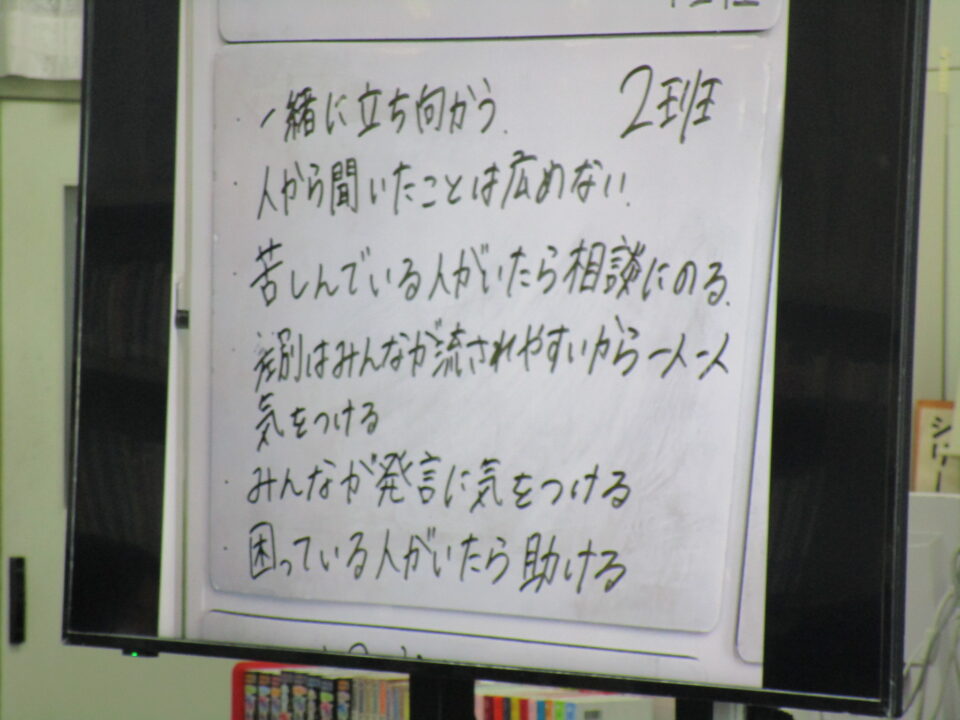 2班
・一緒に立ち向かう.
・人から聞いたことは広めない.
・苦しんでいる人がいたら相談にのる.
・差別はみんなが流されやすいから一人一人
気をつける
・みんなが発言に気をつける
・困っている人がいたら助ける